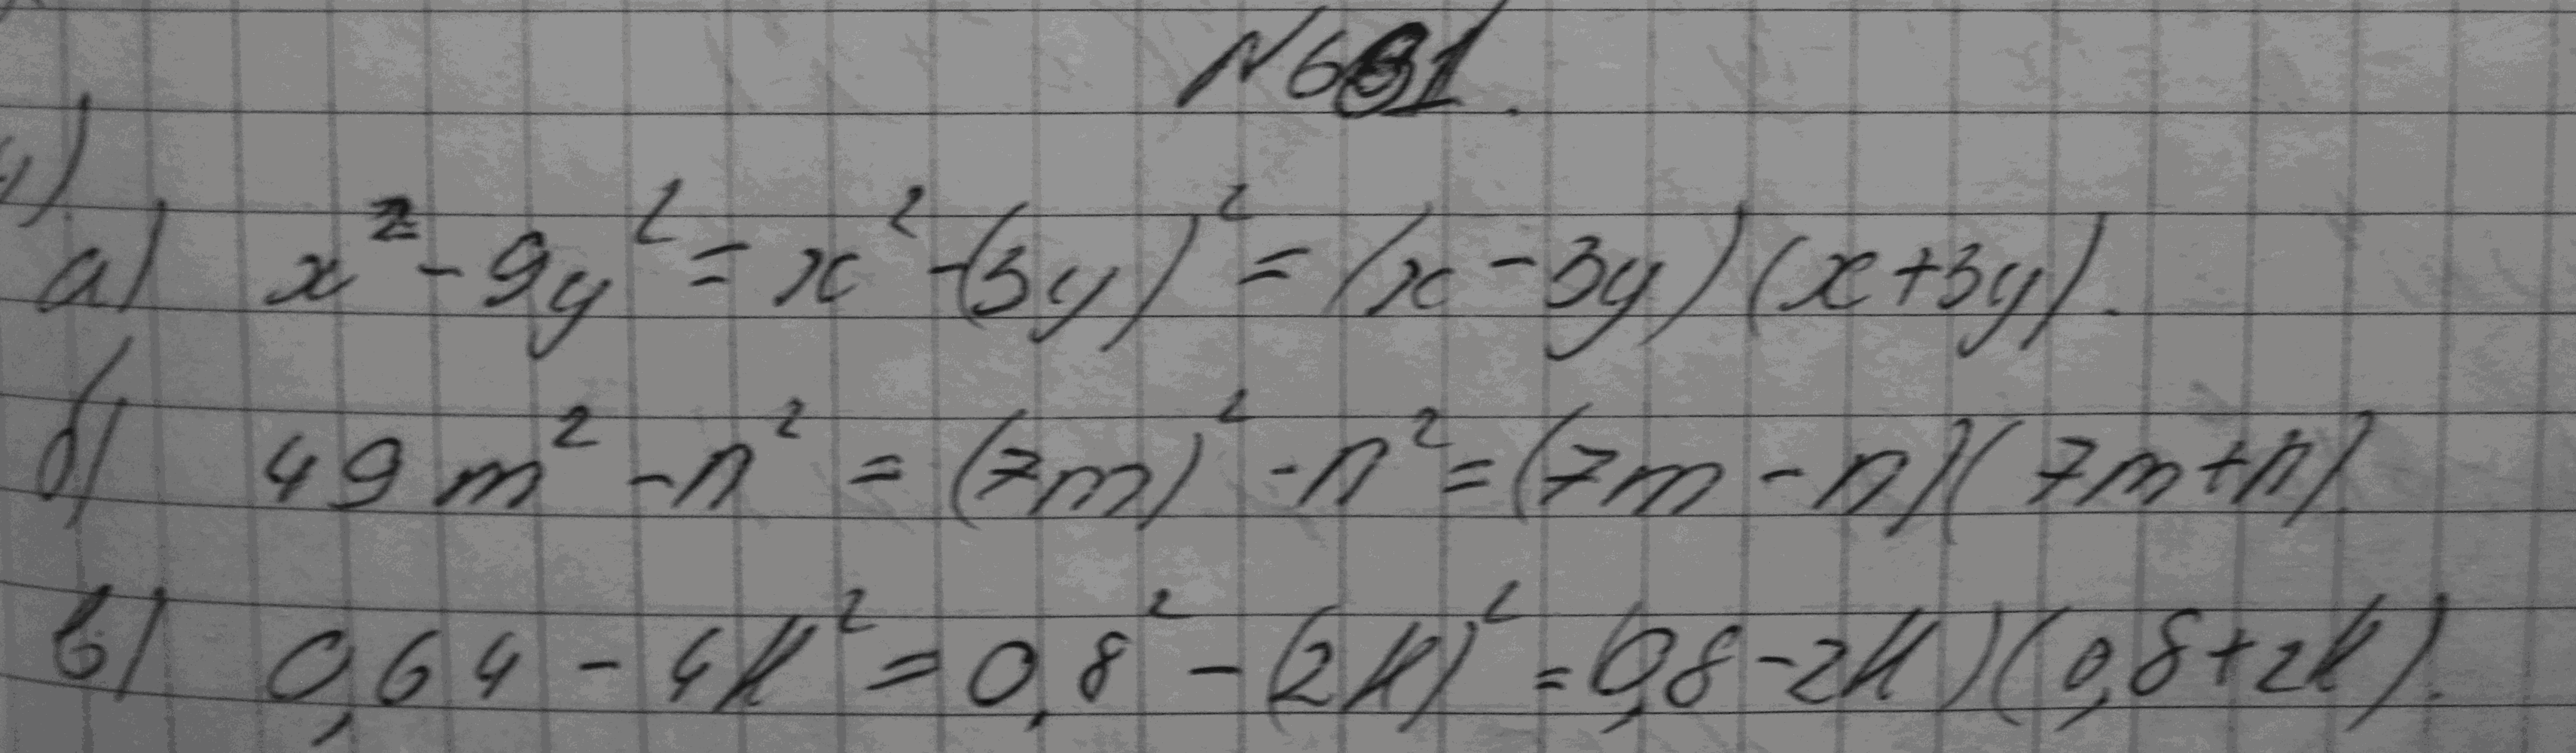 №631.
а) x² - 9y² = x² - (3y)² = (x - 3y)(x + 3y).
б) 49m² - n² = (7m)² - n² = (7m - n)(7m + n)
в) 0,64 - 4k² = 0,8² - (2k)² = (0,8 - 2k)(0,8 + 2k).